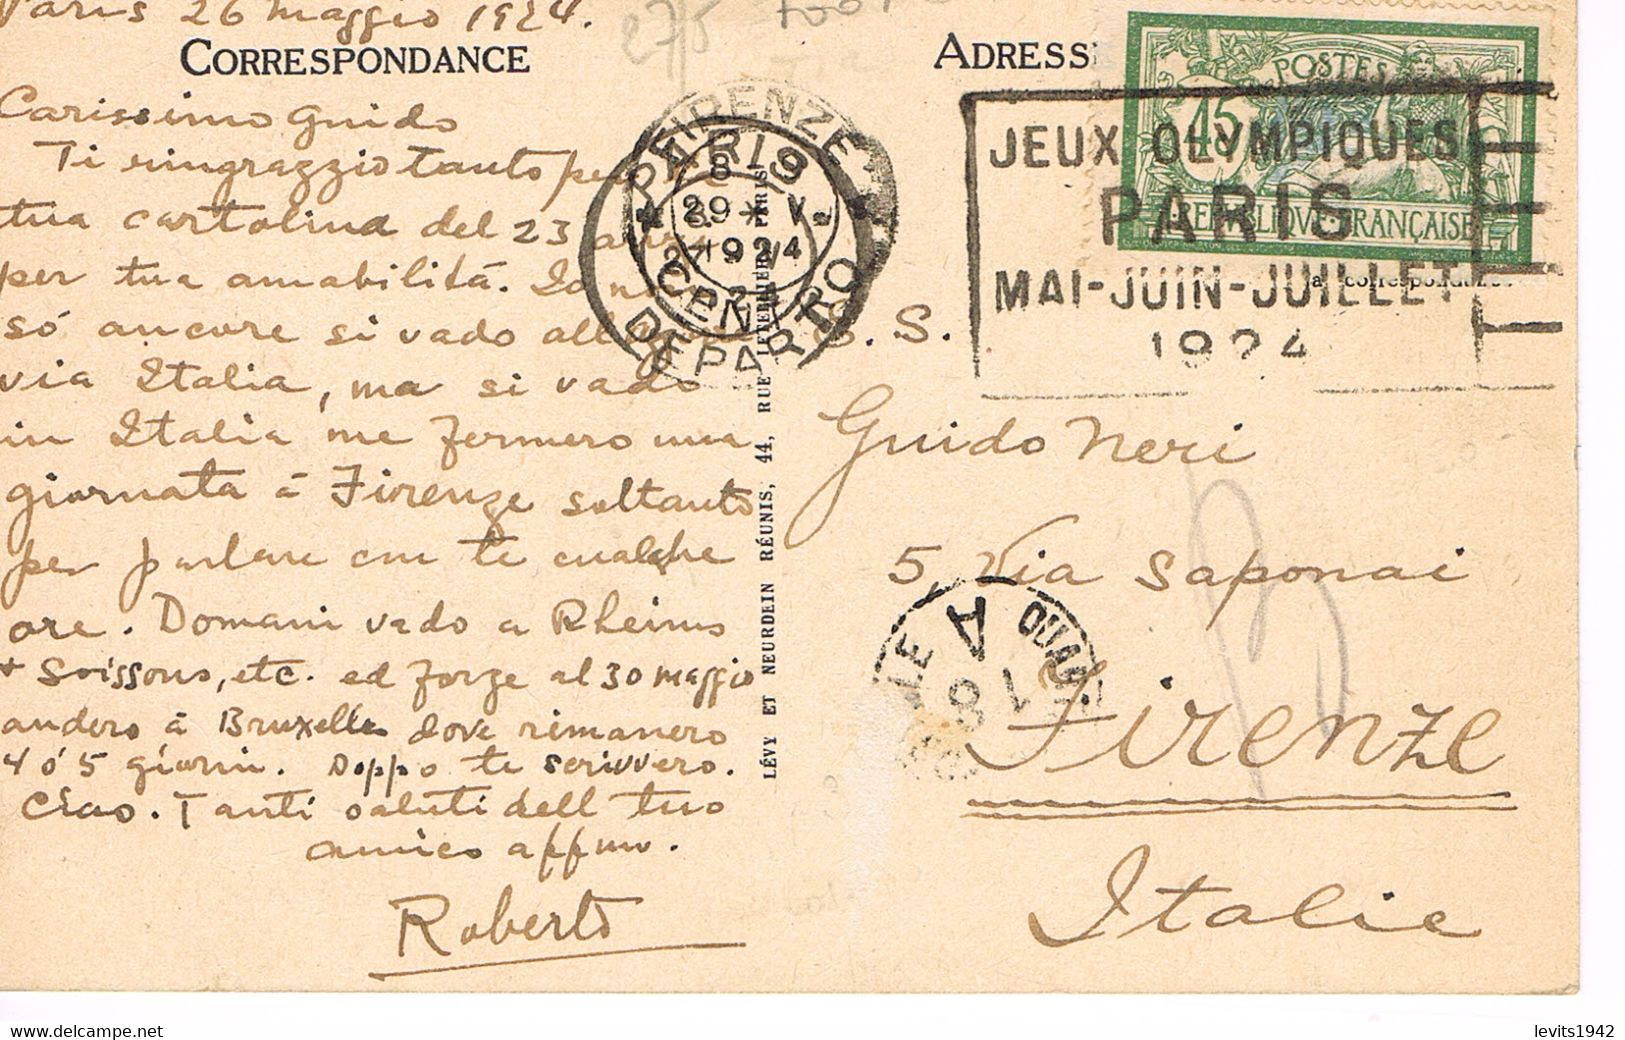 Paris 26 maggio 1924.
CORRESPONDANCE
Carissimo Guido
Ti ringrazzio tanto per la
tua cartolina del 23 and
per tua amabilità. Io non
só ancore si vado all
via Italia, ma si vado
in Italia me fermero una
giornata á Firenze soltanto
per parlare con te cualche
ore. Domani vado a Rheims
+ Soissons, etc. ed forze al 30 maggio
andero á Bruxelles dove rimanero
4 ó 5 giorni. Doppo te scrivvero.
Ciao. Tanti saluti dell tuo
amico affmo.
Roberto
LÉVY ET NEURDEIN RÉUNIS, 44, RUE LETELLIER, PARIS
ADRESSE
POSTES
45
REPUBLIQUE FRANÇAISE
JEUX OLYMPIQUES
PARIS
MAI-JUIN-JUILLET
1924
a correspondance
FIRENZE
CENTRO
PARIS
DEPART
8
29 V
1924
S. S.
Guido Neri
5, Via Saponai
Firenze
Italie
A
levits1942